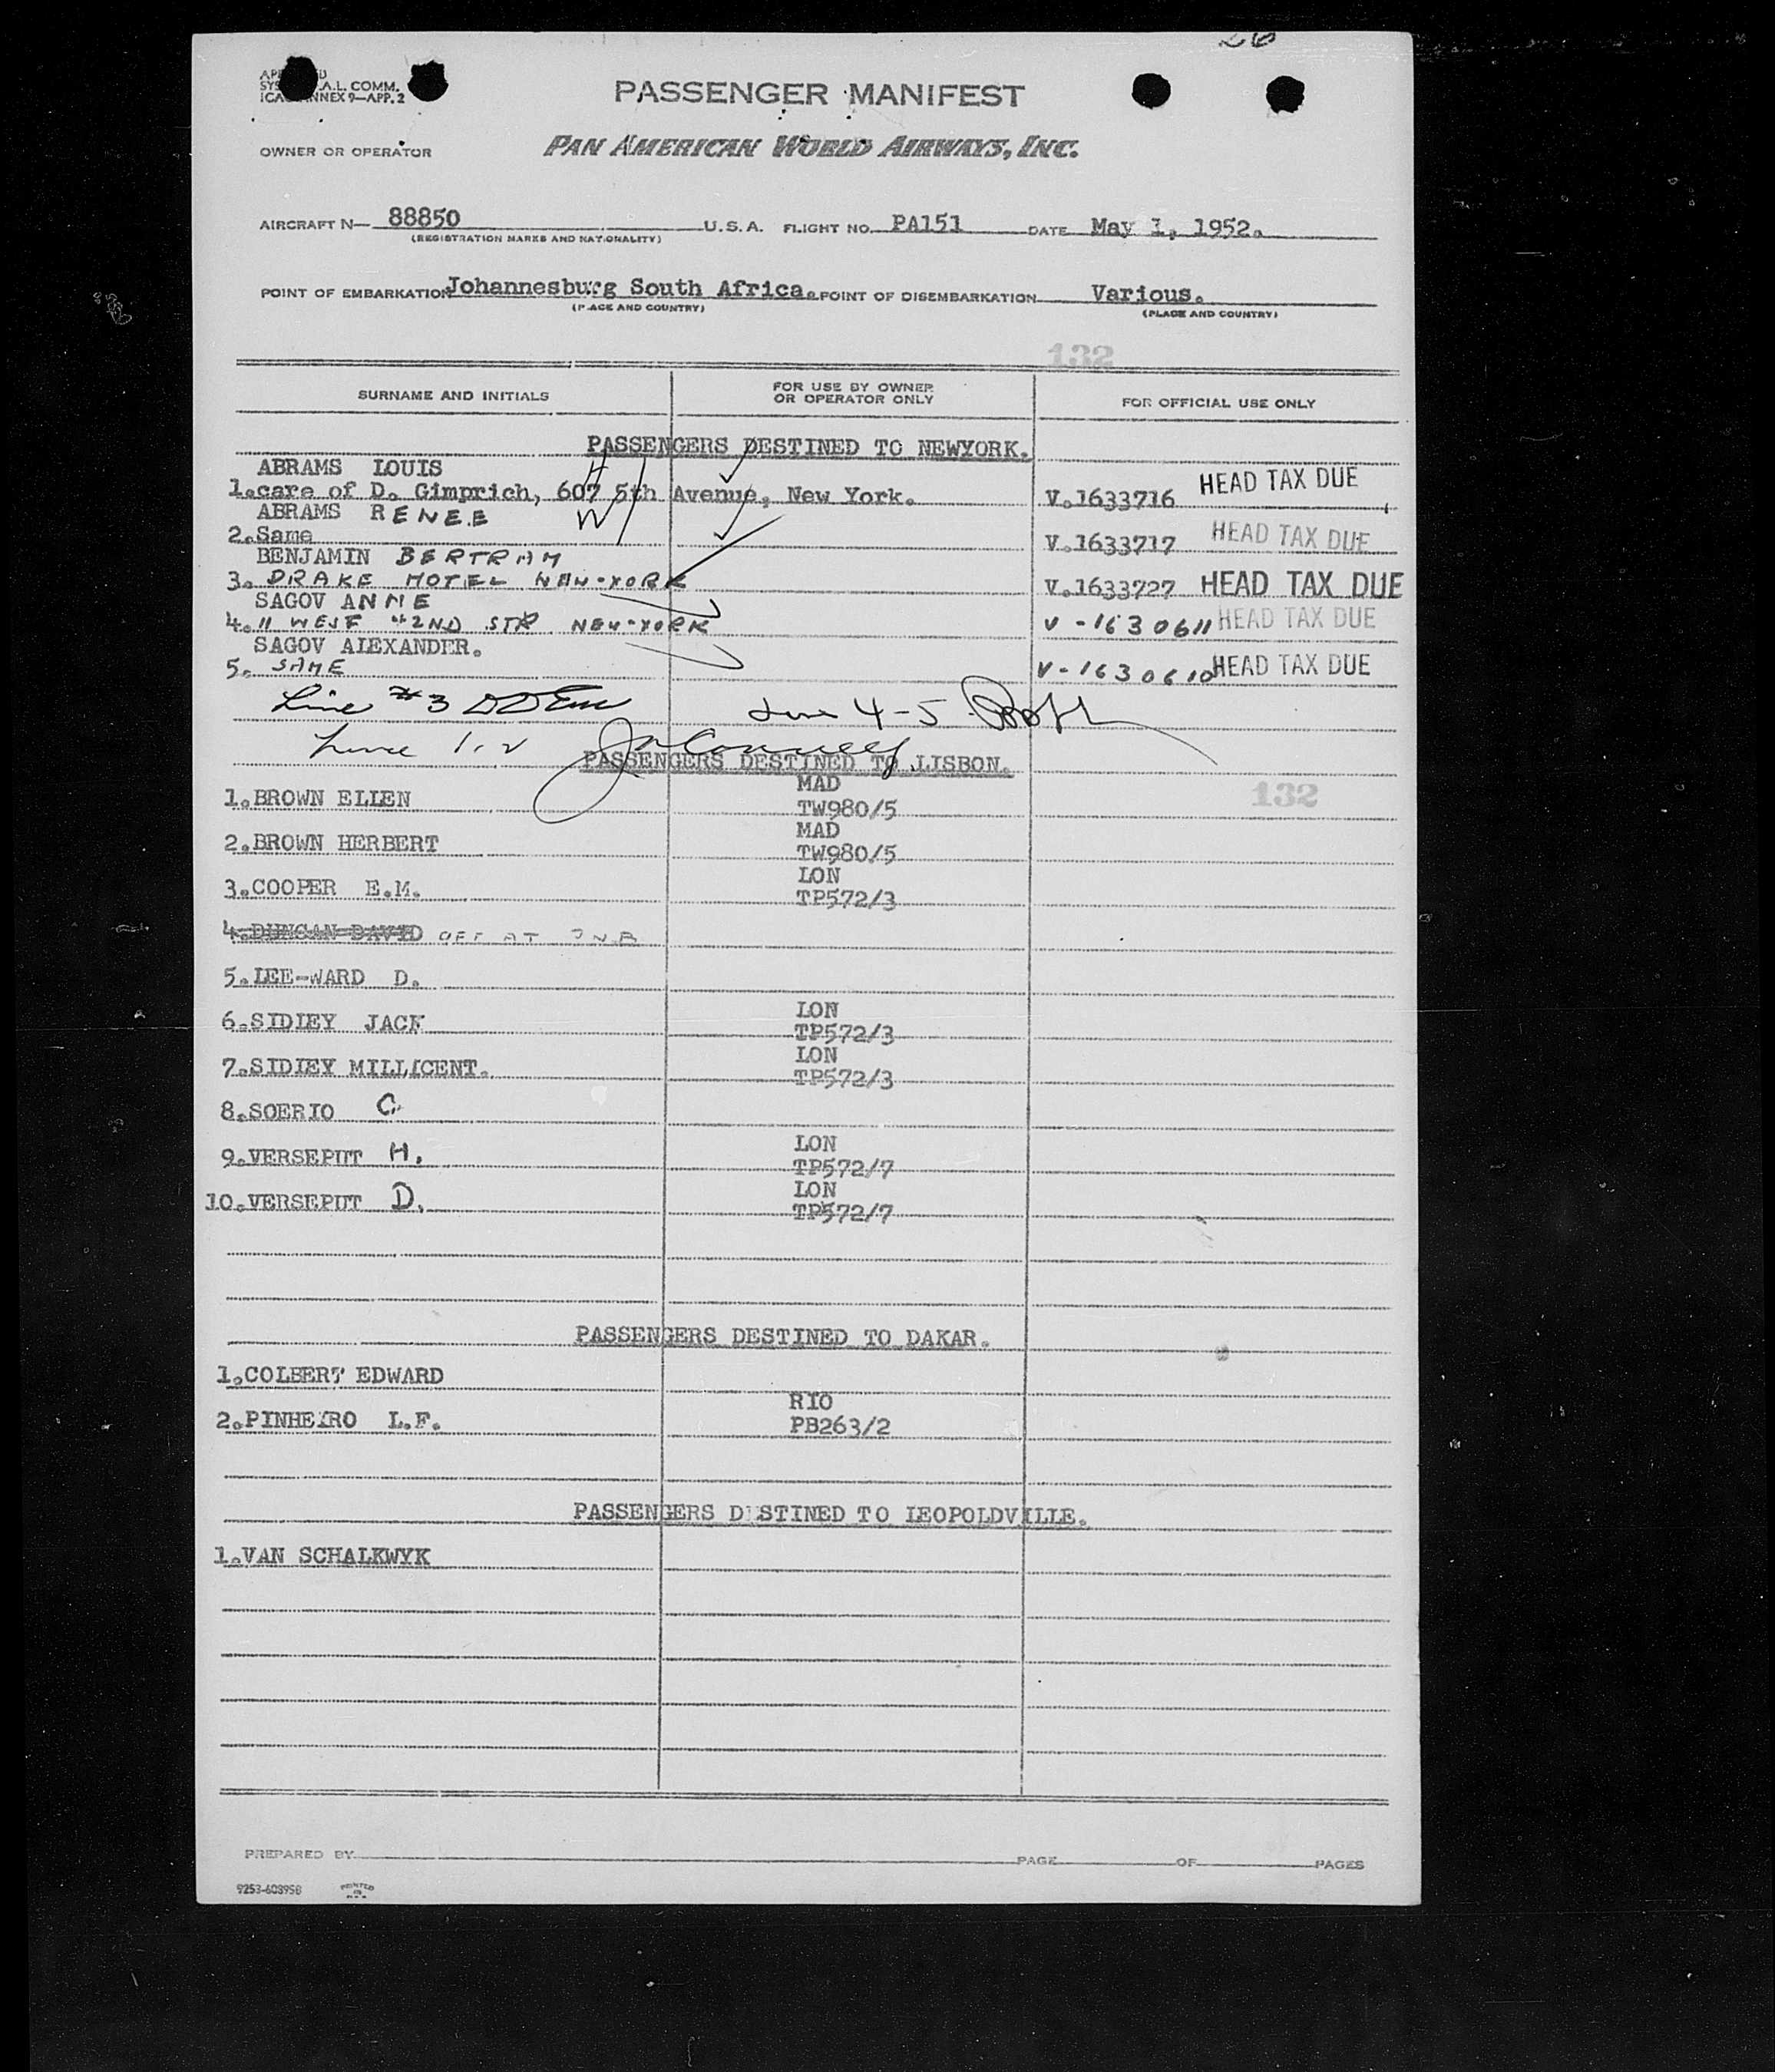 26
PASSENGER MANIFEST
A.L. COMM.
ANNEX 9—APP. 2
OWNER OR OPERATOR PAN AMERICAN WORLD AIRWAYS, INC.
AIRCRAFT N— 88850 U.S.A. FLIGHT NO. PA151 DATE May 1, 1952.
(REGISTRATION MARKS AND NATIONALITY)
POINT OF EMBARKATION Johannesburg South Africa. POINT OF DISEMBARKATION Various.
(PLACE AND COUNTRY) (PLACE AND COUNTRY)
132
SURNAME AND INITIALS FOR USE BY OWNER OR OPERATOR ONLY FOR OFFICIAL USE ONLY
PASSENGERS DESTINED TO NEWYORK.
ABRAMS LOUIS H
1.care of D. Gimprich, 607 5th Avenue, New York. V.1633716 HEAD TAX DUE
ABRAMS RENEE W
2.Same V.1633717 HEAD TAX DUE
BENJAMIN BERTRAM
3. DRAKE HOTEL NEW-YORK V.1633727 HEAD TAX DUE
SAGOV ANNE
4. 11 WEST 42ND STR NEW-YORK V-1630611 HEAD TAX DUE
SAGOV ALEXANDER.
5. SAME V-1630610 HEAD TAX DUE
Line #3 Line 4-5
Line 1-2
PASSENGERS DESTINED TO LISBON.
MAD
1.BROWN ELLEN TW980/5 132
MAD
2.BROWN HERBERT TW980/5
LON
3.COOPER E.M. TP572/3
4.DUNCAN DAVID OFF AT JNB
5.LEE-WARD D.
LON
6.SIDLEY JACK TP572/3
LON
7.SIDLEY MILLICENT. TP572/3
8.SOERIO C.
LON
9.VERSEPUT H. TP572/7
LON
10.VERSEPUT D. TP572/7
PASSENGERS DESTINED TO DAKAR.
1.COLBERT EDWARD
RIO
2.PINHEIRO L.F. PB263/2
PASSENGERS DESTINED TO LEOPOLDVILLE.
1.VAN SCHALKWYK
PREPARED BY PAGE OF PAGES
9253-60395B PRINTED IN